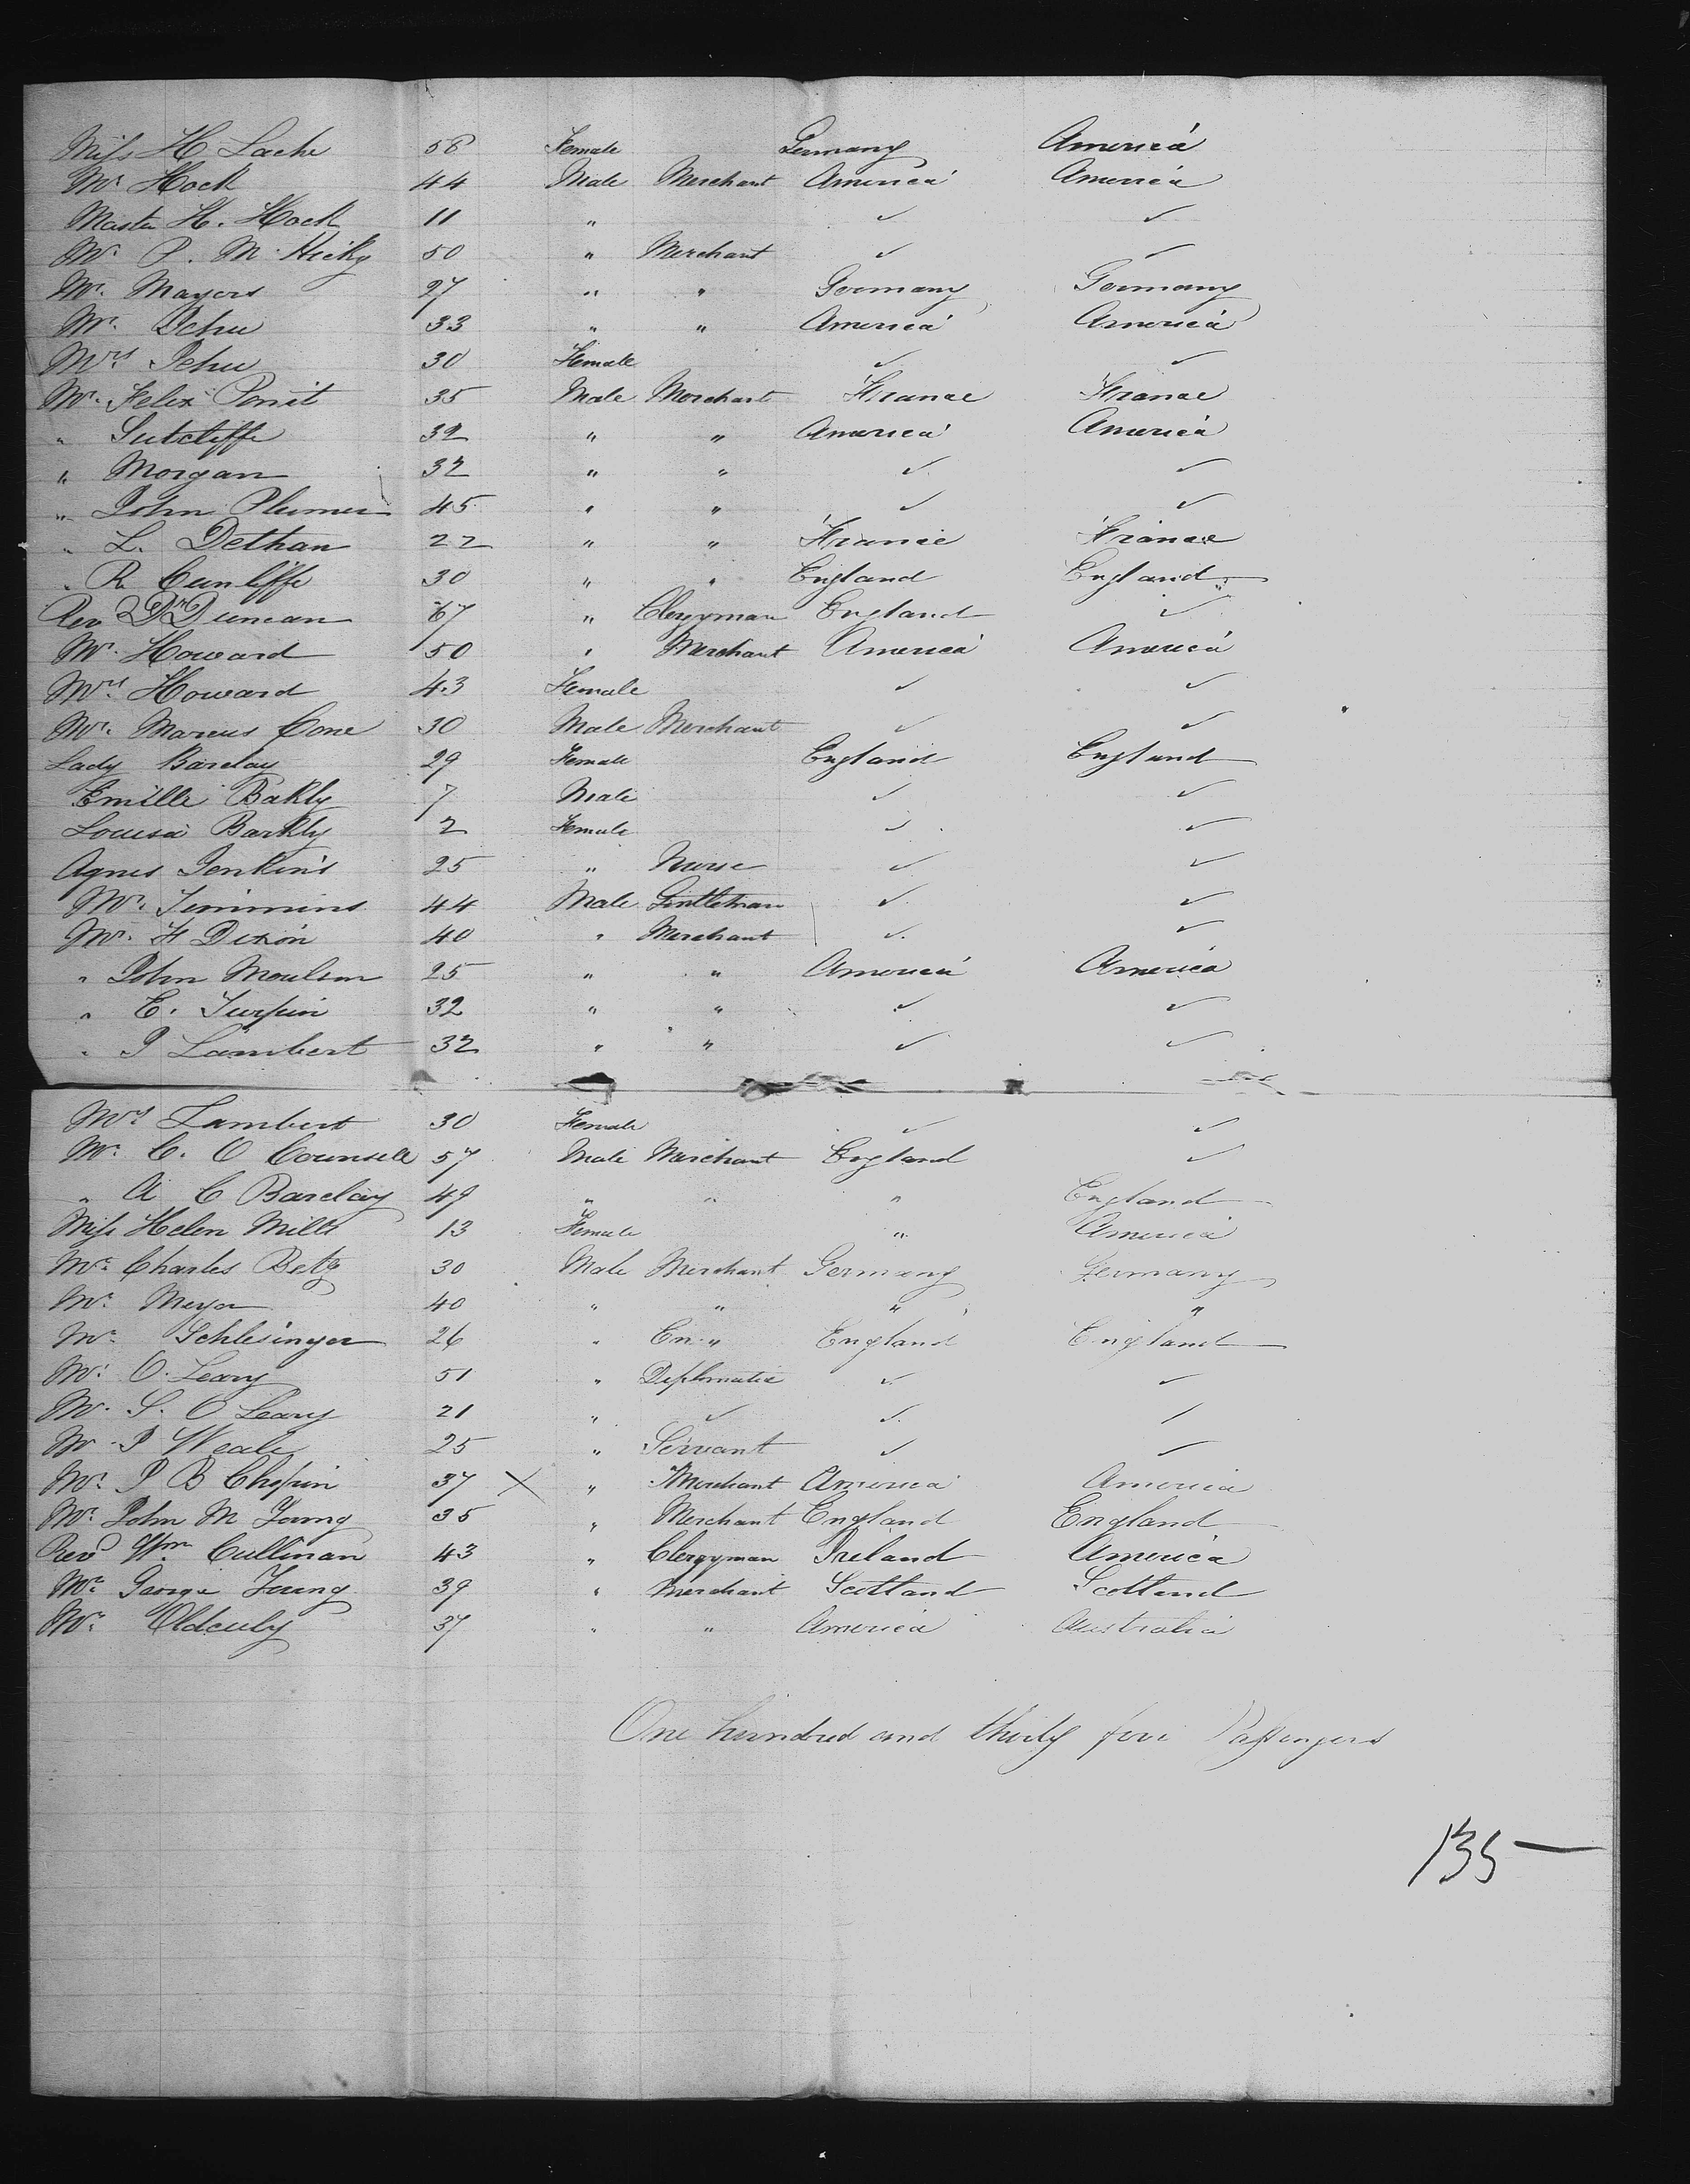 Miss H Lache 58 Female Germany America
Mr Hock 44 Male Merchant America America
Master H. Hock 11 " ✓ ✓
Mr. P. M. Hicky 50 " Merchant ✓ ✓
Mr. Mayers 27 " " Germany Germany
Mr. Jehu 33 " " America America
Mrs Jehu 30 Female ✓ ✓
Mr. Felix Ponit 35 Male Merchant France France
" Sutcliffe 32 " " America America
" Morgan 32 " " ✓ ✓
" John Plumer 45 " " ✓ ✓
" L. Dethan 22 " " France France
" R Cunliffe 30 " " England England
Rev Dr Duncan 67 " Clergyman England ✓
Mr. Howard 50 " Merchant America America
Mrs Howard 43 Female ✓ ✓
Mr. Marcus Cone 30 Male Merchant ✓ ✓
Lady Barclay 29 Female England England
Emille Bakly 7 Male ✓ ✓
Louisa Barkly 2 Female ✓ ✓
Agnes Jenkins 25 " Nurse ✓ ✓
Mr. Timmins 44 Male Gentleman ✓ ✓
Mr. F Dixon 40 " Merchant ✓ ✓
" John Moulson 25 " " America America
" E. Turpin 32 " " ✓ ✓
" J Lambert 32 " " ✓ ✓
Mrs Lambert 30 Female ✓ ✓
Mr. C. O Counsell 57 Male Merchant England ✓
" A C Barclay 49 " " " England
Miss Helen Mills 13 Female " America
Mr Charles Betz 30 Male Merchant Germany Germany
Mr. Meyer 40 " " " "
Mr Schlesinger 26 " En " England England
Mr. O. Leary 51 " Diplomatic ✓ ✓
Mr. S. O Leary 21 " ✓ ✓ ✓
Mr J Weale 25 " Servant ✓ ✓
Mr. J B Chopin 37 X " Merchant America America
Mr. John M Young 35 " Merchant England England
Revd Wm Cullinan 43 " Clergyman Ireland America
Mr. George Young 39 " Merchant Scotland Scotland
Mr. 37 " " America Australia
One hundred and thirty five Passengers
135